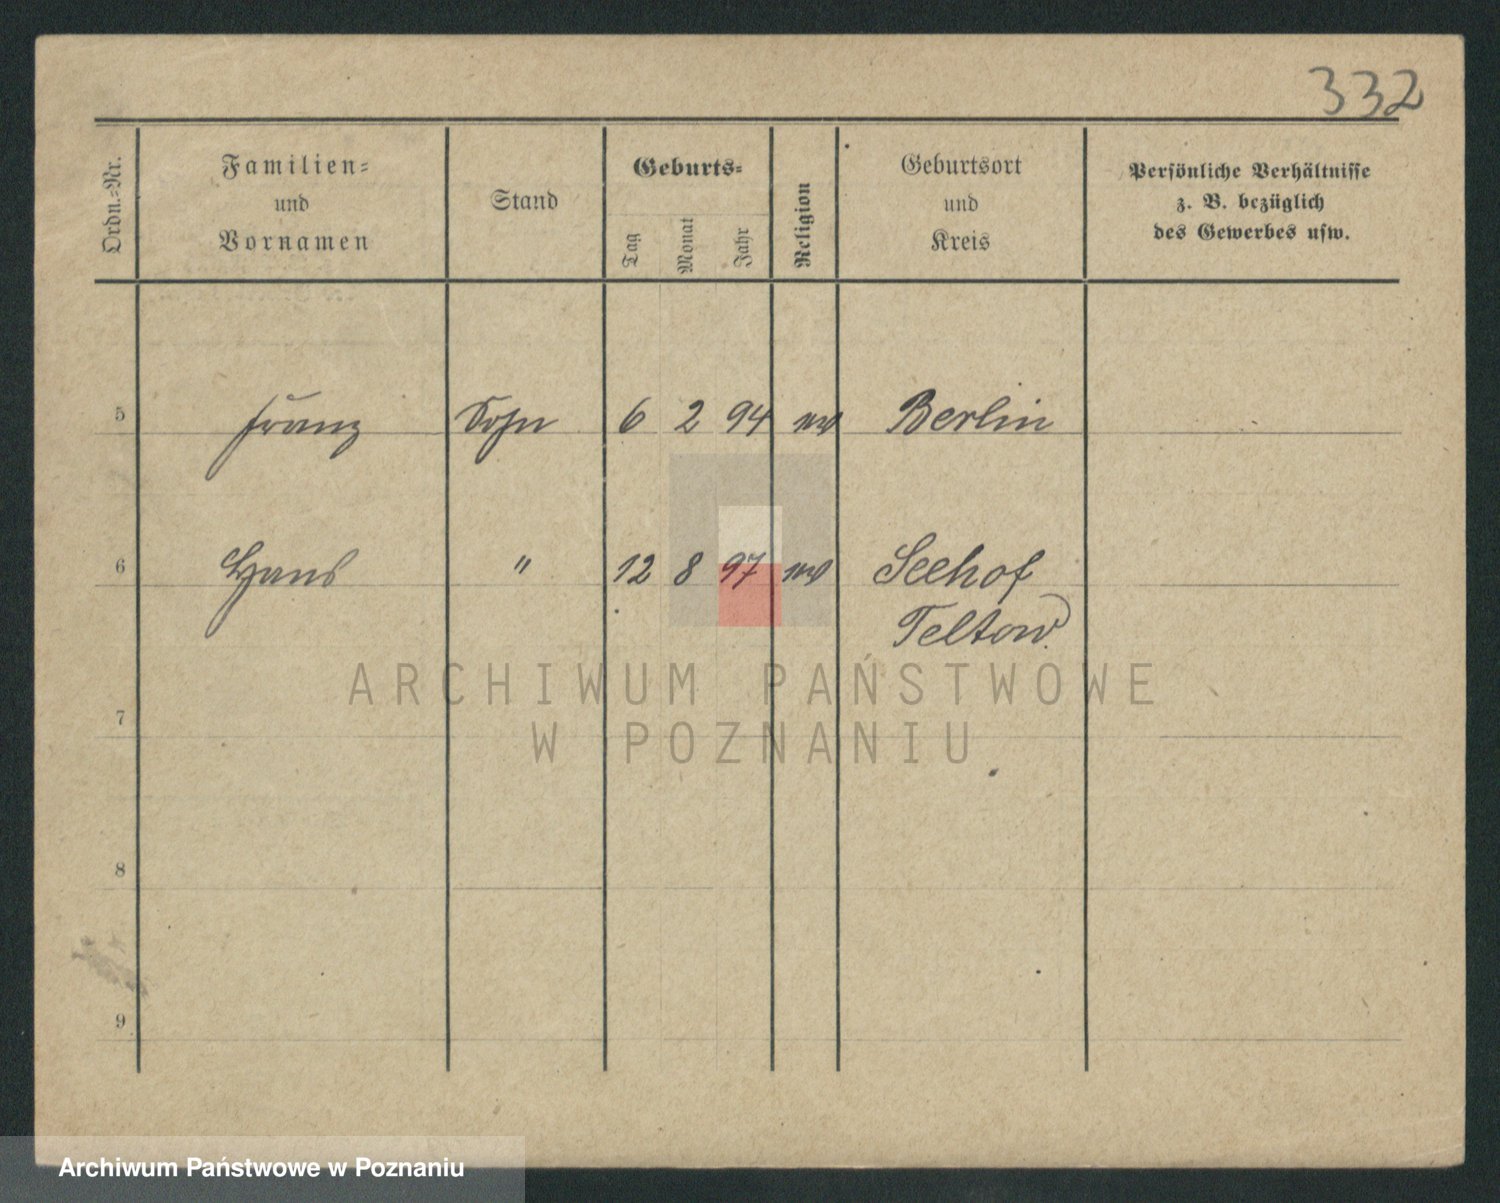 332
Ordn.-Nr.
Familien-
und
Vornamen
Stand
Geburts-
Tag
Monat
Jahr
Religion
Geburtsort
und
Kreis
Persönliche Verhältnisse
z. B. bezüglich
des Gewerbes usw.
5 Franz Sohn 6 2 94 ev Berlin
6 Hans " 12 8 97 ev Seehof
Teltow.
ARCHIWUM PAŃSTWOWE
W POZNANIU
7
8
9
Archiwum Państwowe w Poznaniu